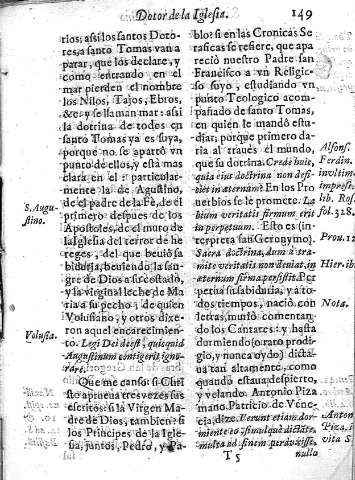 Dotor de la Iglesia. 149
rios; assi los santos Doto-
res, a santo Tomas van a
parar, que los declare, y
como entrando en el
mar pierden el nombre
los Nilos, Tajos, Ebros,
&c. y se llaman mar: assi
la dotrina de todos en
santo Tomas ya es suya,
porque no se apartò vn
punto de ellos, y està mas
clara en el: particular-
mente la de Agustino,
de el padre de la Fè, de el
primero despues de los
Apostoles, de el muro de
la Iglesia del terror de he
reges, del que beuiò sa
biduria, beuiendo la san
gre de Dios a su costado,
y la virginal leche de Ma
ria a su pecho; de quien
Volusiano, y otros dixe-
ron aquel encarecimien
to. Legi Dei deest, quicquid
Augustinum contigerit igno-
rare.
Que me canso: si Chri
sto aprueua tres vezes sus
escritos: si la Virgen Ma
dre de Dios, tambien: si
los Principes de la Igle-
sia, juntos, Pedro, y Pa-
S. Augu-
stino.
Volusia.
blo: si en las Cronicas Se
raficas se refiere, que apa
reciò nuestro Padre san
Francisco a vn Religio-
so suyo, estudiando vn
punto Teologico acom-
pañado de santo Tomas,
en quien le mandò estu-
diar; porque primero da-
ria al traues el mundo,
que su dotrina. Crede huic,
quia eius doctrina non defi-
ciet in æternum. En los Pro
uerbios se le promete. La
bium veritatis firmum erit
in perpetuum. Esto es (in-
terpreta san Geronymo).
Sacra doctrina, dum à tra-
mite veritatis non deuiat, in
æternum firma persistit. Per
petua su sabiduria, y a to-
dos tiempos, naciò con
letras, muriò comentan-
do los Cantares: y hasta
durmiendo (o raro prodi-
gio, y nunca oydo) dicta-
ua tan altamente, como
quando estaua despierto,
y velando Antonio Piza
mano, Patricio de Vene-
cia, dize. Verunt etiam dor-
miente
multa ad finem perduxisse,
T 5 nullo
Alfons.
Ferdin.
in vltima
impress.
lib. Ros.
fol. 328.
Prou. 12
Hier. ib.
Nota.
Anton.
Piza. in
vita S.